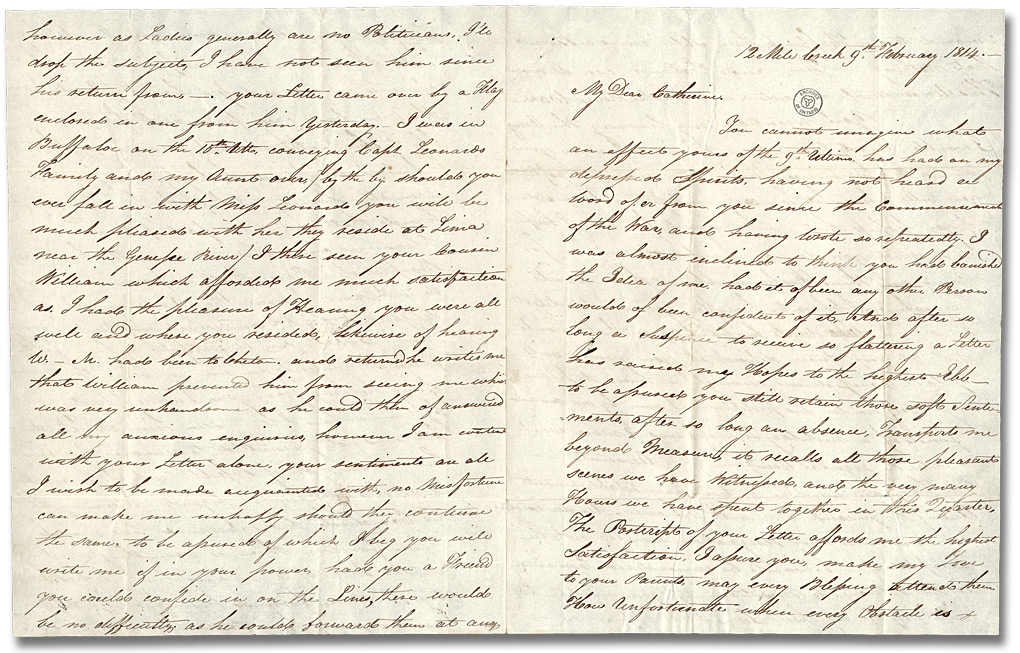 12 Mile Creek 9th February 1814.—
ARCHIVES OF ONTARIO
My Dear Catherine,
You cannot imagine what
an effect yours of the 9th Ultimo, has had on my
depressed Spirits, having not heard a
word of or from you since the Commencement
of the War, and having wrote so repeatedly. I
was almost inclined to think you had banished
the Idea of me. had it of been any other Person
would of been confident of it, And after so
long a Suspence to receive so flattering a Letter
has raised my Hopes to the highest Ebb—
to be assured you still retain those soft Senti-
ments, after so long an absence, Transports me
beyond Measure, it recalls all those pleasant
scenes we have Witnessed, and the very many
Hours we have spent together in this Quarter,
The Postcript of your Letter affords me the highest
Satisfaction. I assure you, make my Love
to your Parents, may every Blessing Attend them
How Unfortunate when every Obstacle is
however as Ladies generally are no Politicians, I'll
drop the subject, I have not seen him since
his return from —. your Letter came over by a Flag
enclosed in one from him Yesterday. I was in
Buffaloe on the 10th Ulto, conveying Capt. Leonards
Family and my Aunt over, (by the by should you
ever fall in with Miss Leonard you will be
much pleased with her they reside at Lima
near the Genesee River) I there seen your Cousin
William which afforded me much satisfaction
as I had the pleasure of Hearing you were all
well and where you resided, likewise of hearing
W— M. had been to and returned, he writes me
that William prevented him from seeing me which
was very unhandsome as he could then of answered
all my anxious enquiries, however I am content
with your Letter alone, your sentiments are all
I wish to be made acquainted with, no Misfortune
can make me unhappy should they continue
the same, to be assured of which I beg you will
write me if in your power, had you a Friend
you could confide in on the Lines, there would
be no difficulty, as he could forward them at any